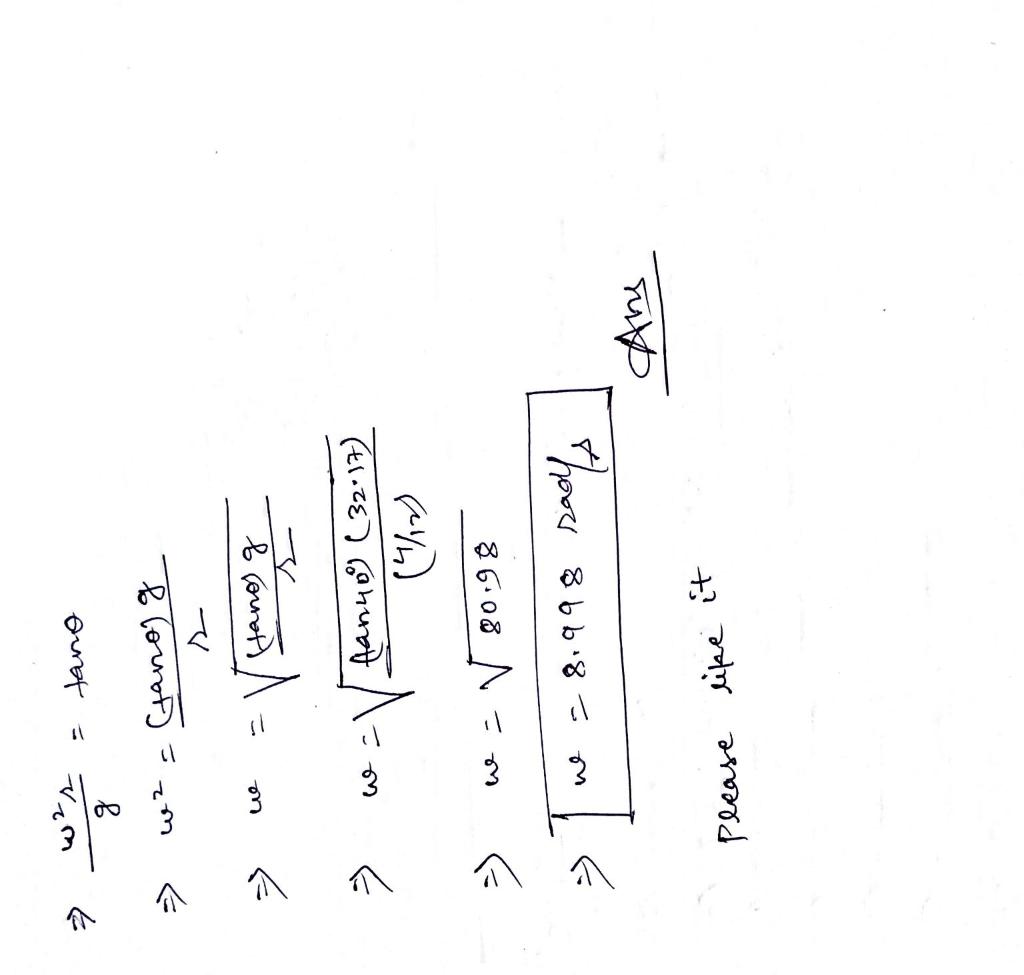 ⇒ ω²r/g = tanθ
⇒ ω² = (tanθ)g/r
⇒ ω = √((tanθ)g/r)
⇒ ω = √((tan40°)(32.17)/(4/12))
⇒ ω = √80.98
⇒ ω = 8.998 rad/s
Ans
Please like it